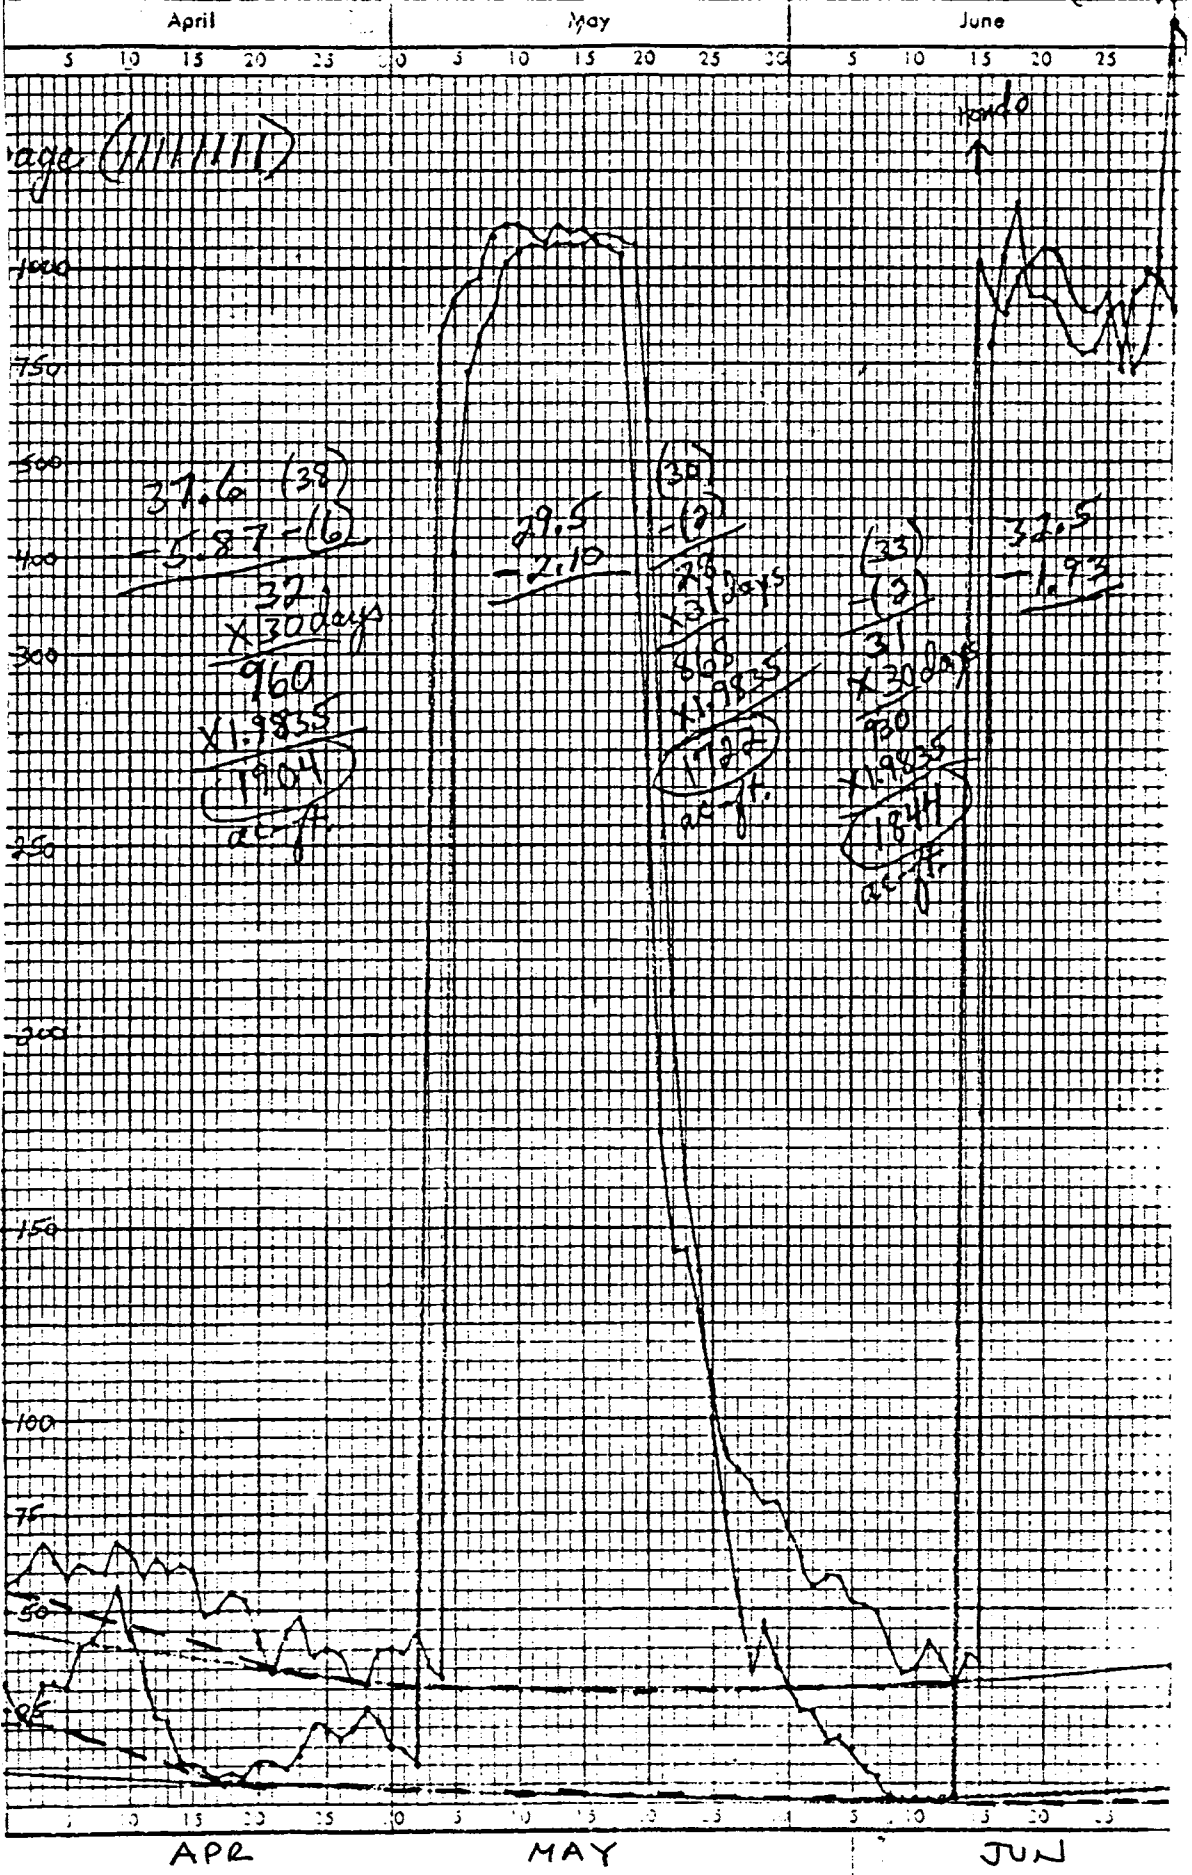 April May June
5 10 15 20 25 30 5 10 15 20 25 30 5 10 15 20 25
rondo
age (||||||||)
1000
750
500
400
300
250
200
150
100
75
50
25
37.6 (38)
- 5.87 -(6)
32.
X 30 days
960
X1.9835
1904
ac-ft.
29.5
- 2.10
(30)
-(2)
28
X31 days
868
X1.9835
1722
ac-ft.
(33)
-(2)
31
X 30 days
930
X1.9835
1844
ac-ft.
32.5
- 1.93
5 10 15 20 25 30 5 10 15 20 25 30 5 10 15 20 25
APR MAY JUN